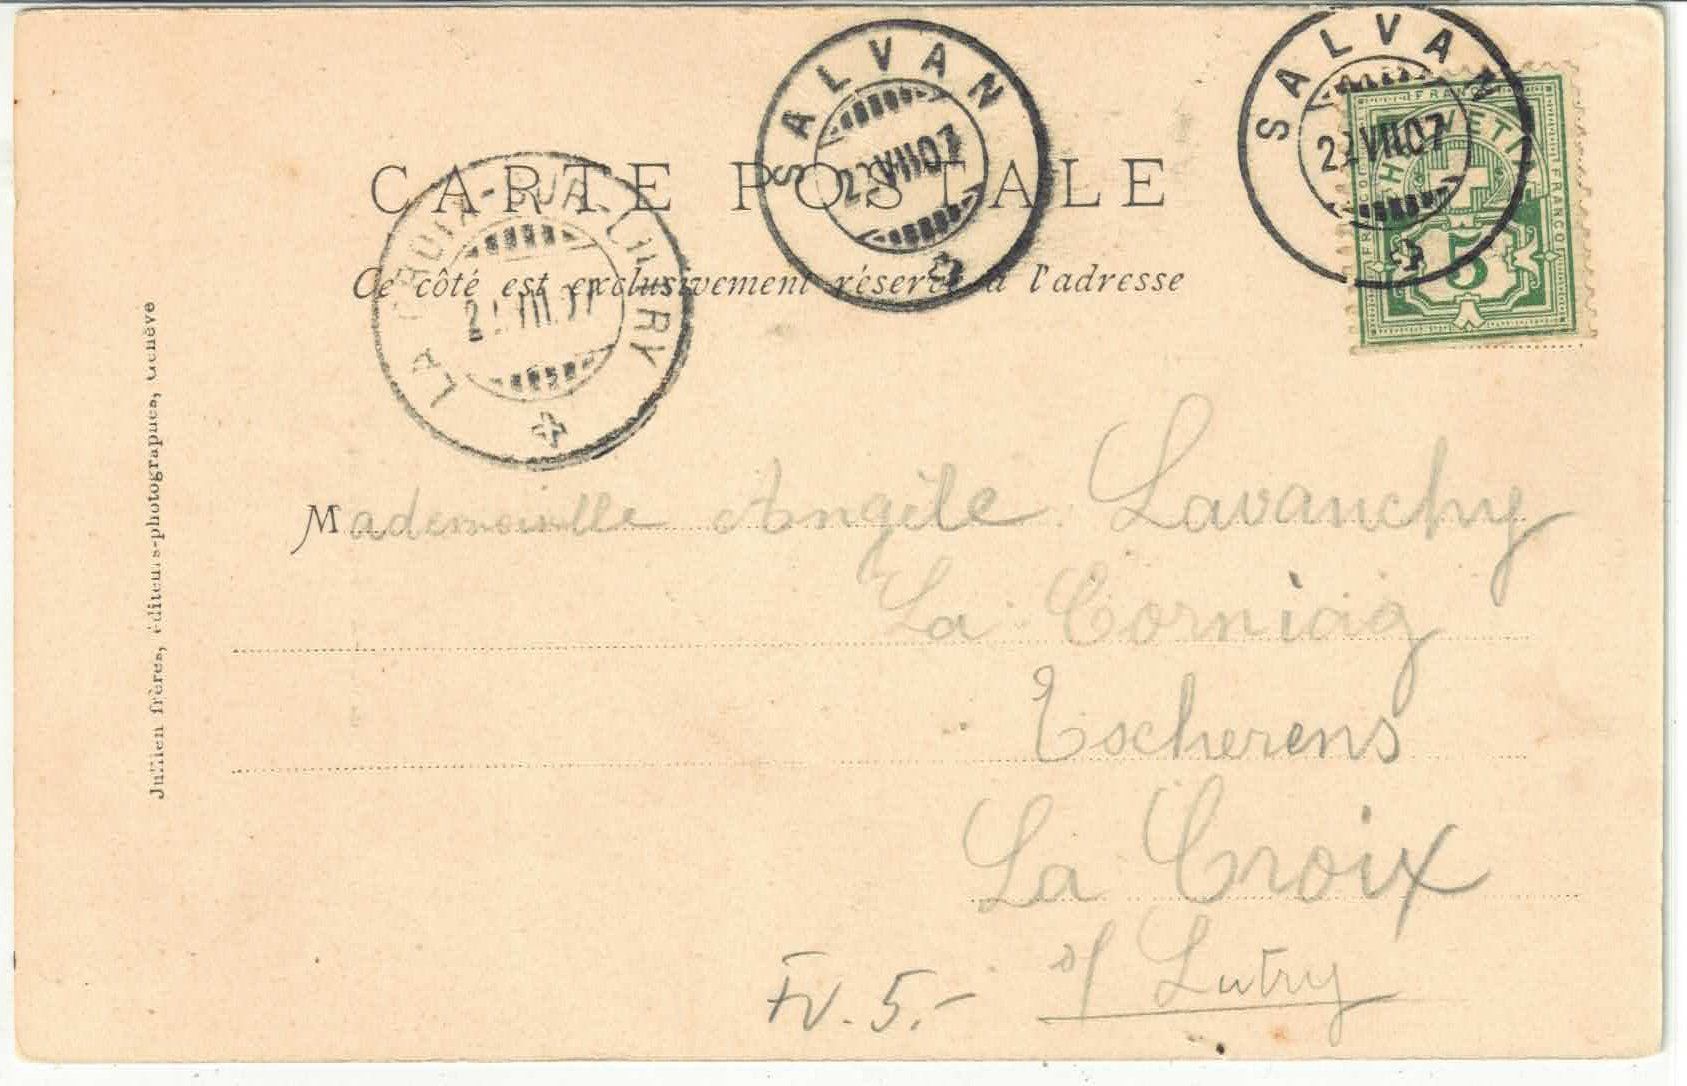 SALVAN
22 VII 07
SALVAN
22 VII 07
FRANCO
HELVETIA
FRANCO
5
CARTE POSTALE
Ce côté est exclusivement réservé à l'adresse
LA CROIX-SUR-LUTRY
VII 07
Jullien frères, éditeurs-photographes, Genève
Mademoiselle Angèle Lavanchy
La
Escherens
La Croix
s/ Lutry
Fr. 5.-